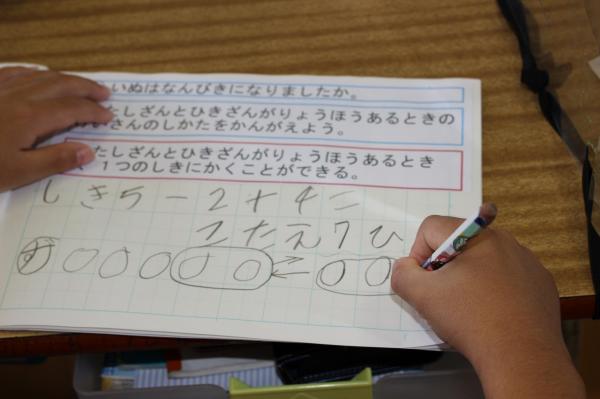 いぬはなんびきになりましたか。
たしざんとひきざんがりょうほうあるときの
いさんのしかたをかんがえよう。
たしざんとひきざんがりょうほうあるとき
、1つのしきにかくことができる。
しき5-2+4=
こたえ7ひ
ず